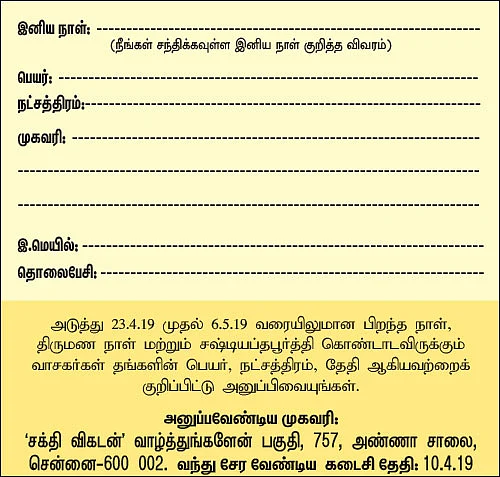 இனிய நாள்: ------------------------------------------------
(நீங்கள் சந்திக்கவுள்ள இனிய நாள் குறித்த விவரம்)
பெயர்: ------------------------------------------------
நட்சத்திரம்:------------------------------------------------
முகவரி: ------------------------------------------------
------------------------------------------------
------------------------------------------------
இ.மெயில்: ------------------------------------------------
தொலைபேசி: ------------------------------------------------
அடுத்து 23.4.19 முதல் 6.5.19 வரையிலுமான பிறந்த நாள்,
திருமண நாள் மற்றும் சஷ்டியப்தபூர்த்தி கொண்டாடவிருக்கும்
வாசகர்கள் தங்களின் பெயர், நட்சத்திரம், தேதி ஆகியவற்றைக்
குறிப்பிட்டு அனுப்பிவையுங்கள்.
அனுப்பவேண்டிய முகவரி:
‘சக்தி விகடன்’ வாழ்த்துங்களேன் பகுதி, 757, அண்ணா சாலை,
சென்னை-600 002. வந்து சேர வேண்டிய கடைசி தேதி: 10.4.19